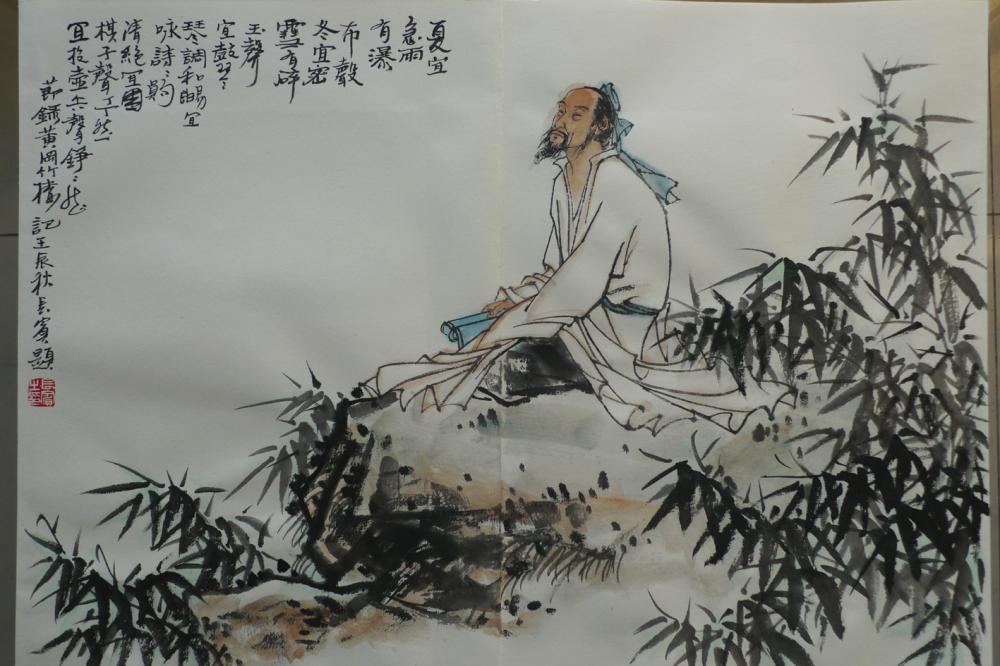 夏宜
急雨
有瀑
布聲
冬宜密
雪有碎
玉聲
宜鼓琴
琴調和暢宜
咏詩〻韻
清絶宜圍
棋子聲丁〻然
宜投壺矢聲錚〻然
節録黄岡竹樓記壬辰秋長賓題